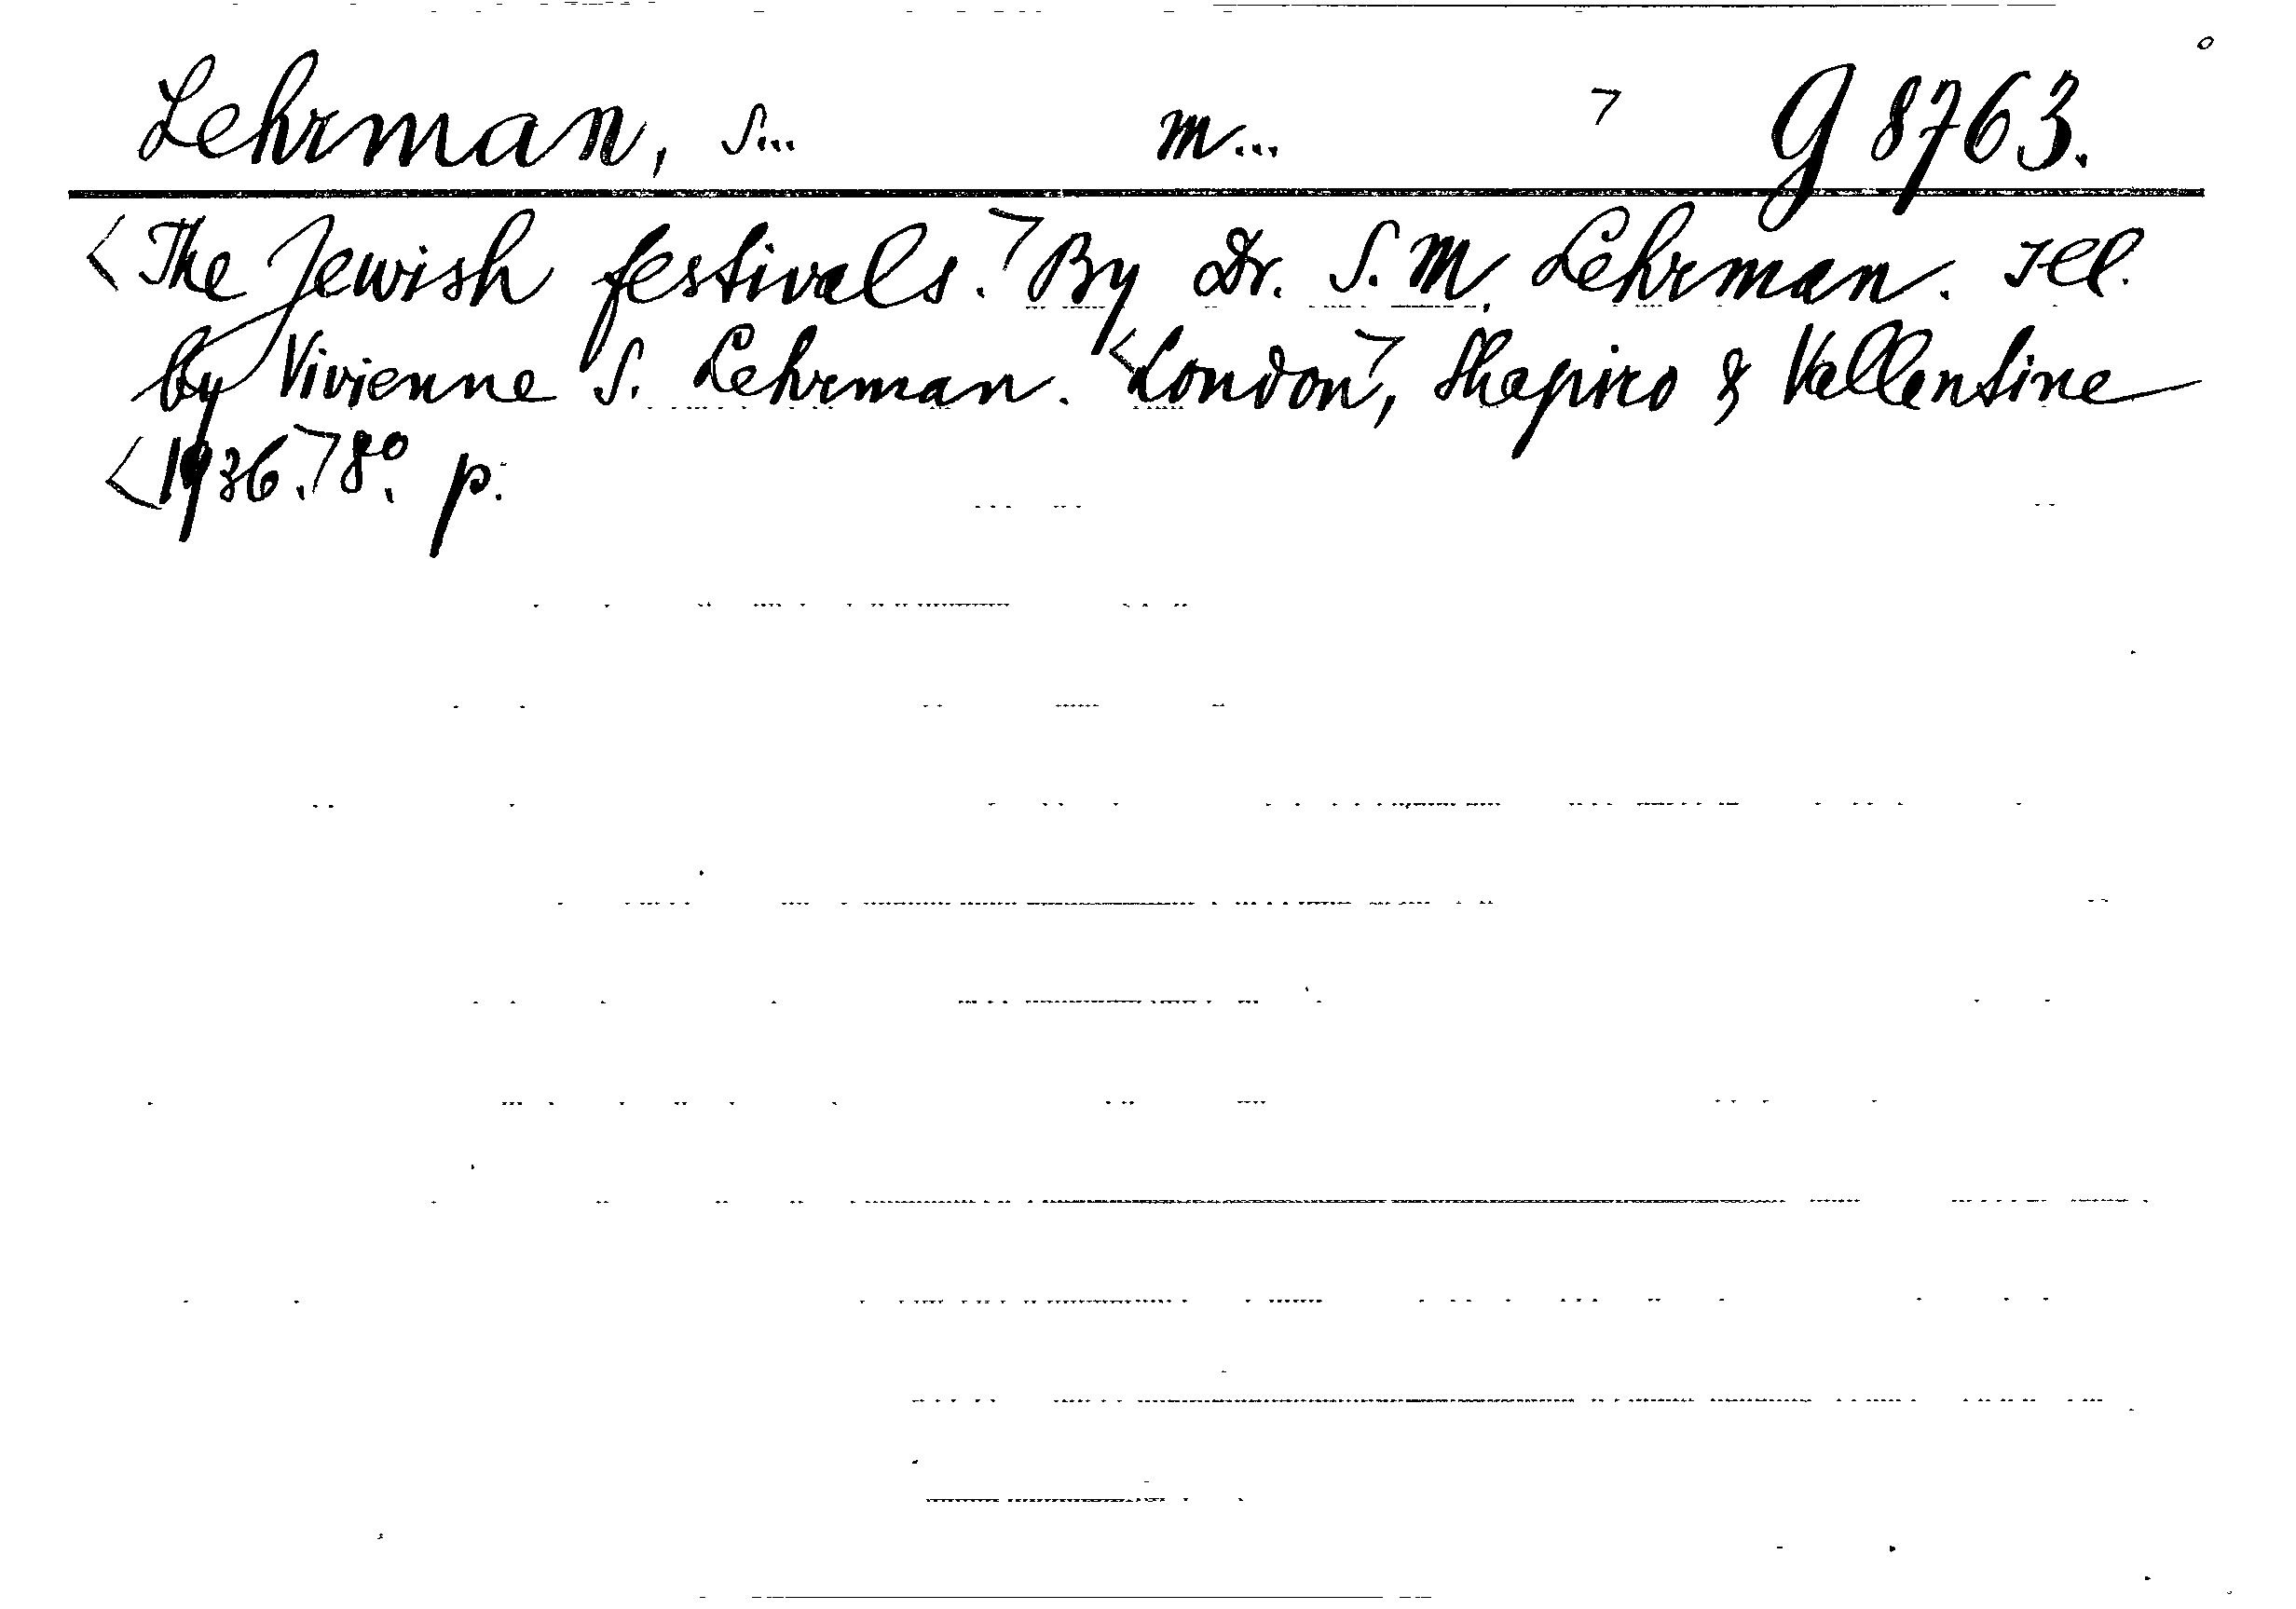 Lehrman, S... M... ¬ G 8763.
<The Jewish festivals.¬ By Dr. S. M. Lehrman. Ill.
by Vivienne S. Lehrman. <London¬, Shapiro & Vallentine
<1936.¬ 8°. p.